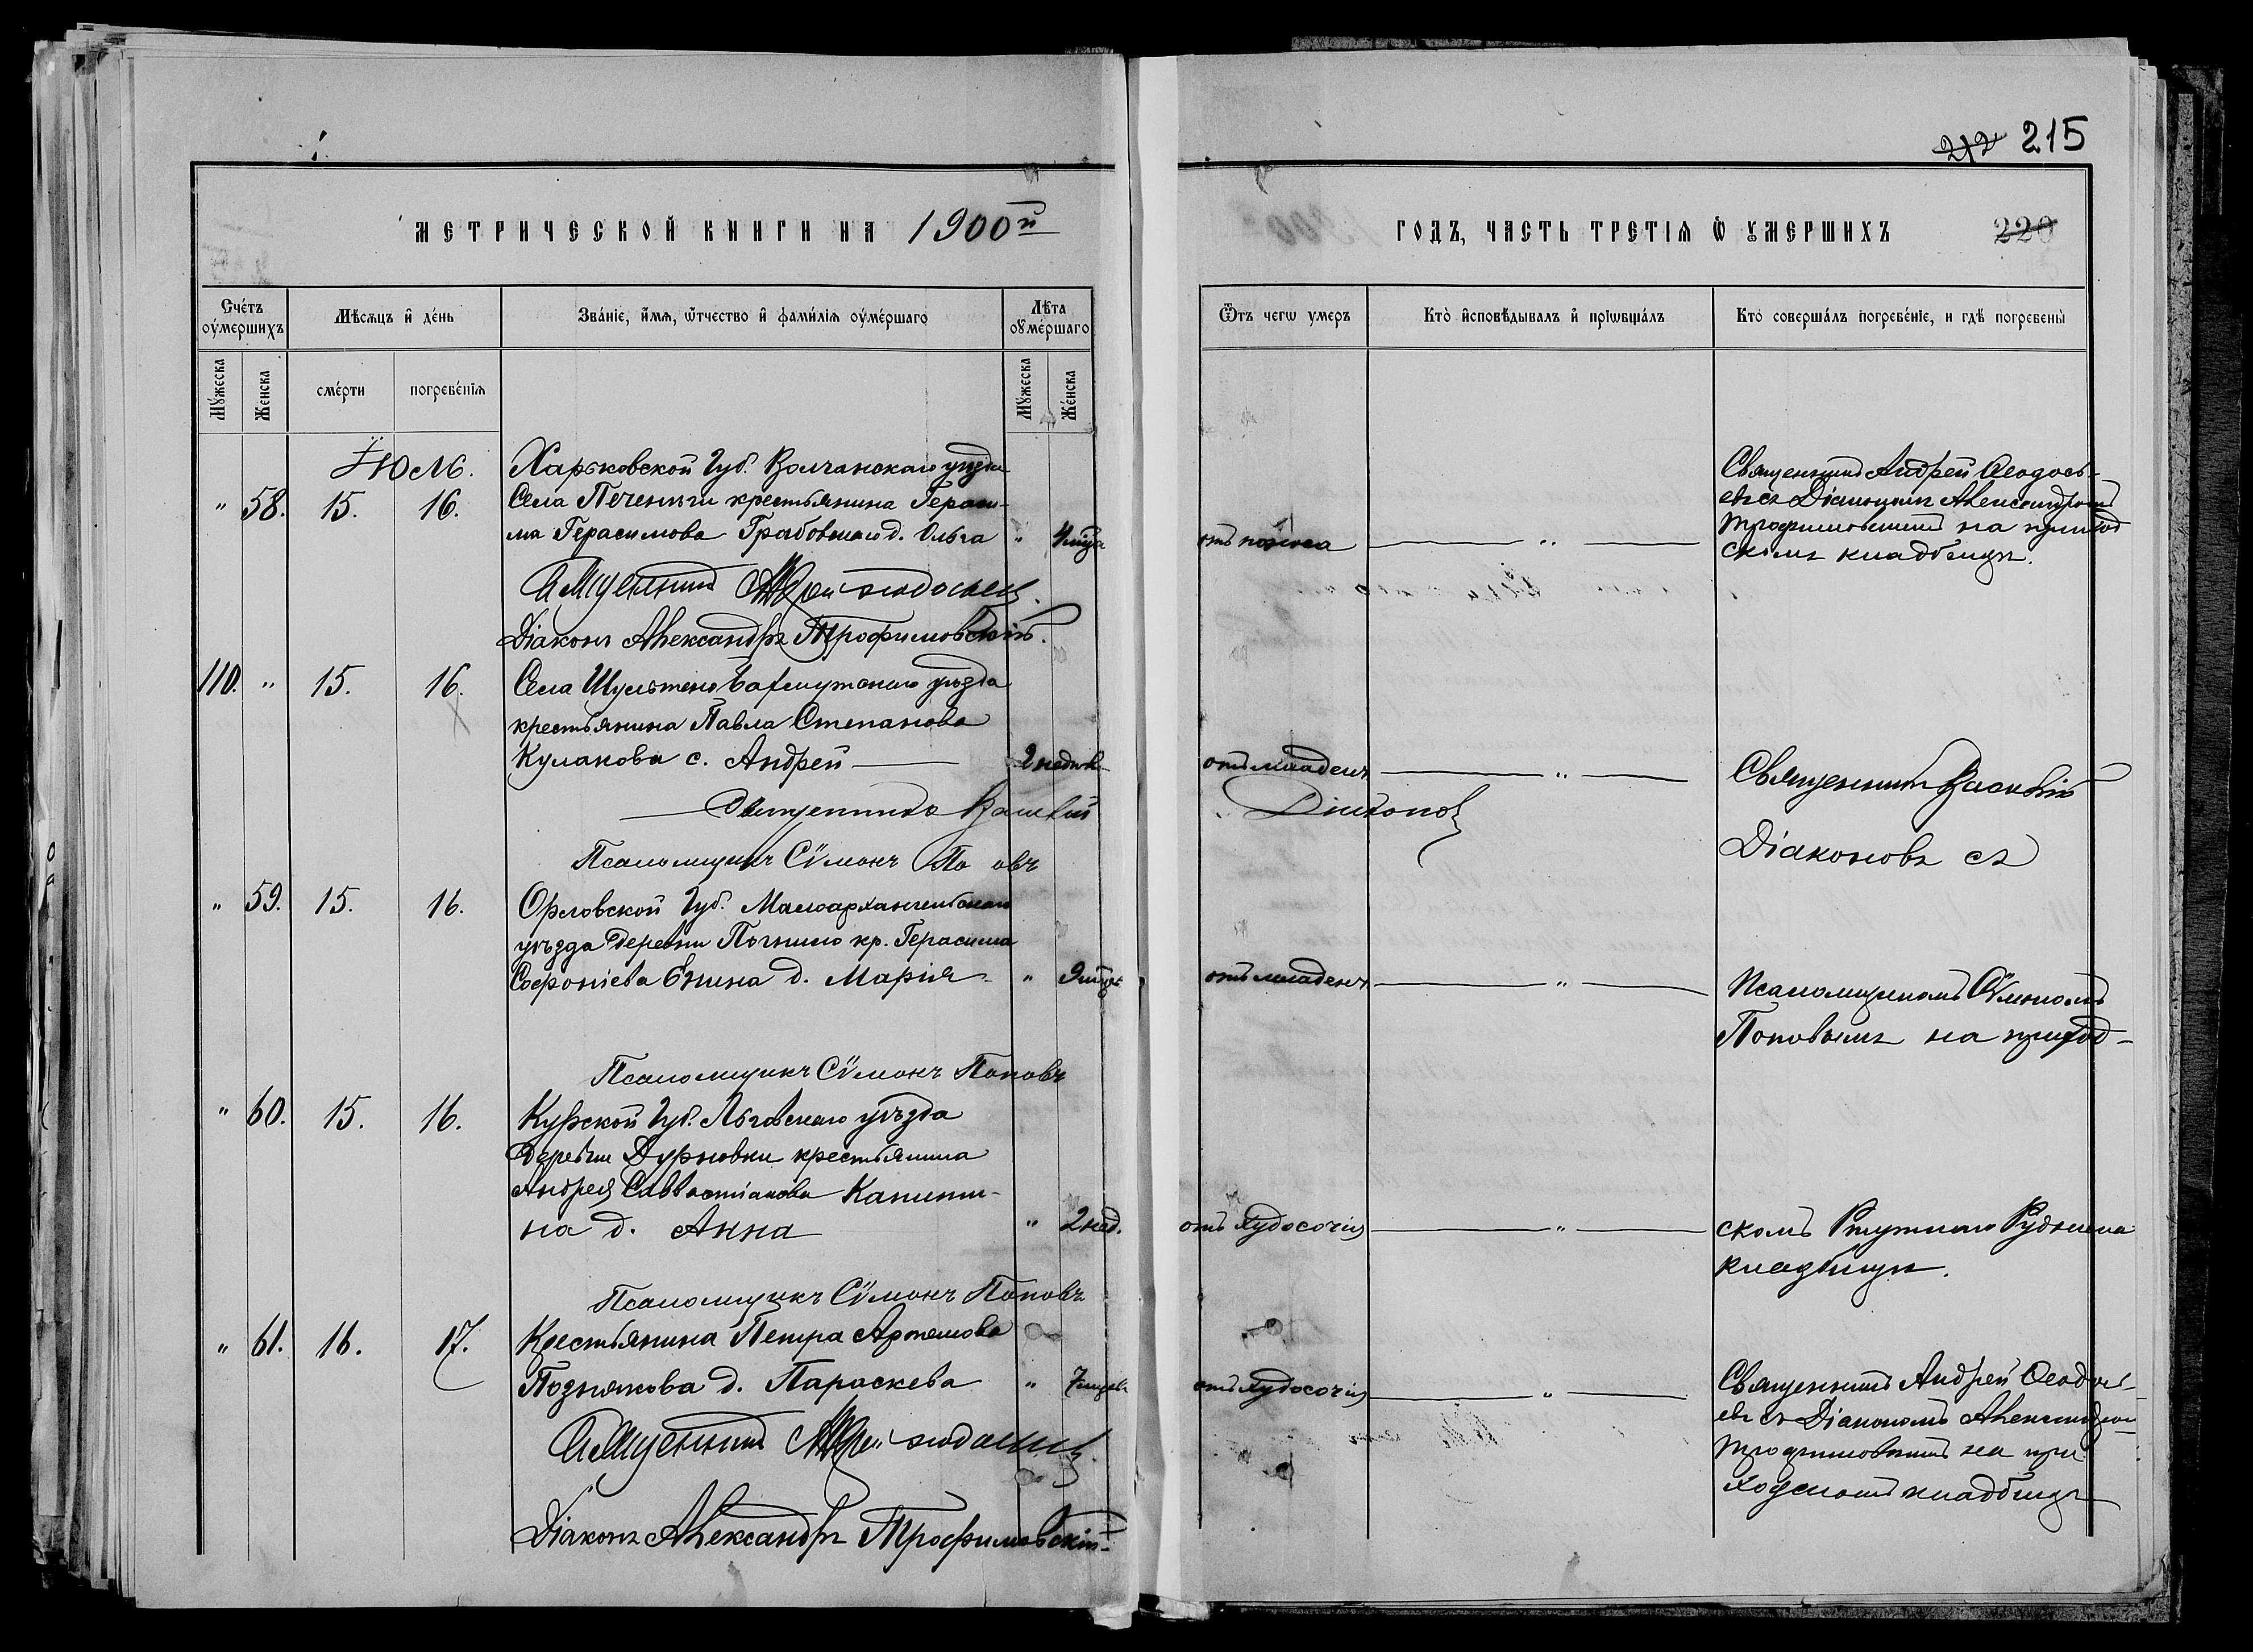 212 215
МЕТРИЧЕСКОЙ КНИГИ НА 1900й ГОДЪ, ЧАСТЬ ТРЕТІѦ Ѡ УМЕРШИХЪ 220
Счетъ оумершихъ
Мѣсяцъ и день
Званіе, имя, отчество и фамилія оумершаго
Лѣта оумершаго
Отъ чего умеръ
Кто исповѣдывалъ и пріобщалъ
Кто совершалъ погребеніе, и гдѣ погребены
Мужеска
Женска
смерти
погребенія
Мужеска
Женска
Іюль.
" 58. 15. 16.
Харьковской Губ. Волчанскаго уѣзда
Села Печенѣги крестьянина Гераси-
ма Герасимова Грабовскаго д. Ольга " 4 мѣся
отъ поноса "
Священникъ Андрей Ѳеодось-
евъ съ Діакономъ Александромъ
Трофимовскимъ на приход
скомъ кладбищѣ.
Священникъ Андрей Ѳеодосьевъ
Діаконъ Александръ Трофимовскій.
110. " 15. 16.
Села Бахмутскаго уѣзда
крестьянина Павла Степанова
Кулакова с. Андрей 2 недѣл.
отъ младен. "
Священникъ Василій
Діаконовъ съ
Священникъ Василій Діаконовъ
Псаломщикъ Сѵмонъ По овъ
" 59. 15. 16.
Орловской Губ. Малоархангельскаго
уѣзда деревни кр. Герасима
Софоніева д. Марія " 9 мѣся
отъ младен. "
Псаломщикомъ Сѵмономъ
Поповымъ на приход-
Псаломщикъ Сѵмонъ Поповъ
" 60. 15. 16.
Курской Губ. Льговскаго уѣзда
деревни Дурновки крестьянина
Андрея Савватіанова Капити-
на д. Анна " 2 нед.
отъ худосочія "
скомъ Ртутнаго Рудника
кладбищѣ.
Псаломщикъ Сѵмонъ Поповъ
" 61. 16. 17.
Крестьянина Петра Артемова
Позднякова д. Параскева " 7 мѣся
отъ худосочія "
Священникъ Андрей Ѳеодось-
евъ съ Діакономъ Александром
Трофимовскимъ на при
ходскомъ кладбищѣ
Священникъ Андрей Ѳеодосьевъ
Діаконъ Александръ Трофимовскій